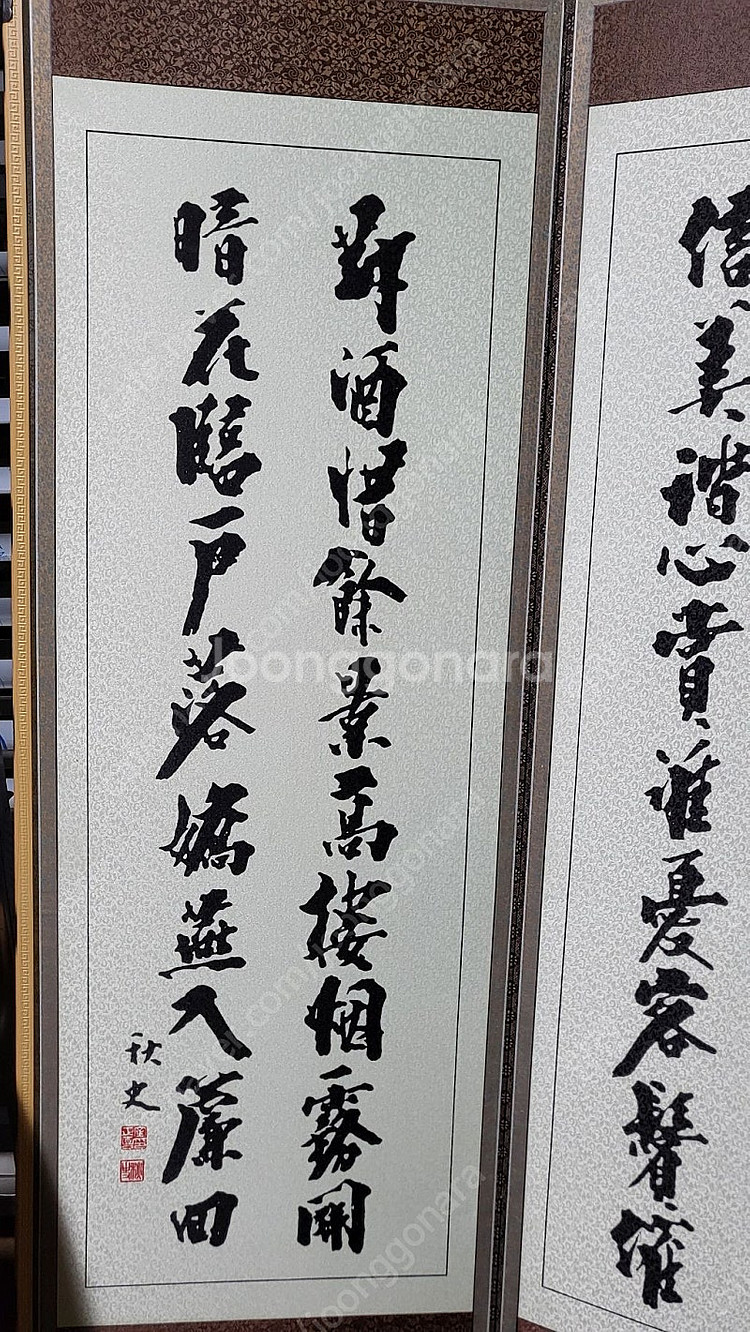 信美諧心賞誰憂容鬢催
對酒惜餘景高樓烟霧開
暗花臨戶落嬌燕入簾回
秋史
Joonggonara